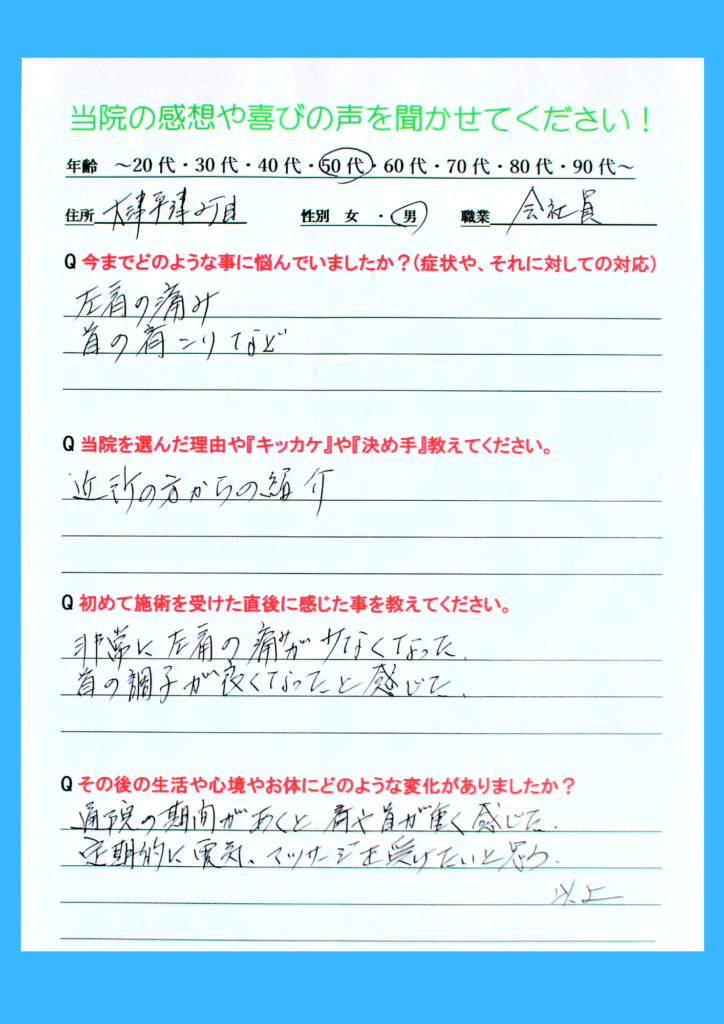 当院の感想や喜びの声を聞かせてください！
年齢 ～20代・30代・40代・50代・60代・70代・80代・90代～
住所 大津平津2丁目 性別 女 ・ 男 職業 会社員
Q 今までどのような事に悩んでいましたか？（症状や、それに対しての対応）
左肩の痛み
首の肩こりなど
Q 当院を選んだ理由や『キッカケ』や『決め手』教えてください。
近所の方からの紹介
Q 初めて施術を受けた直後に感じた事を教えてください。
非常に左肩の痛みが少なくなった.
首の調子が良くなったと感じた.
Q その後の生活や心境やお体にどのような変化がありましたか？
通院の期間があくと、肩や首が重く感じた.
定期的に電気、マッサージを受けたいと思う.
以上